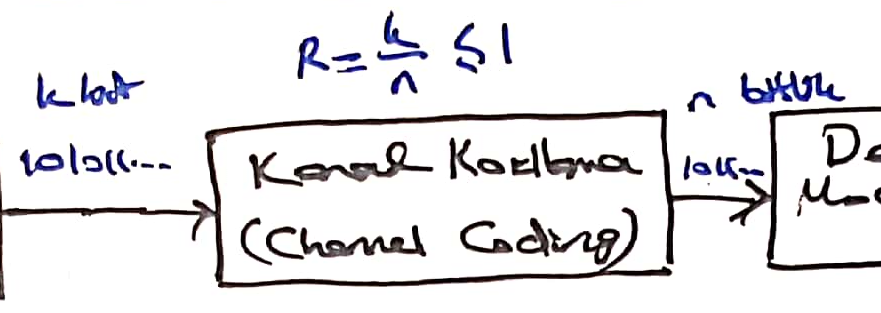 R = k/n ≤ 1
k bit
101011...
Kanal Kodlama
(Channel Coding)
n bitlik
1011...